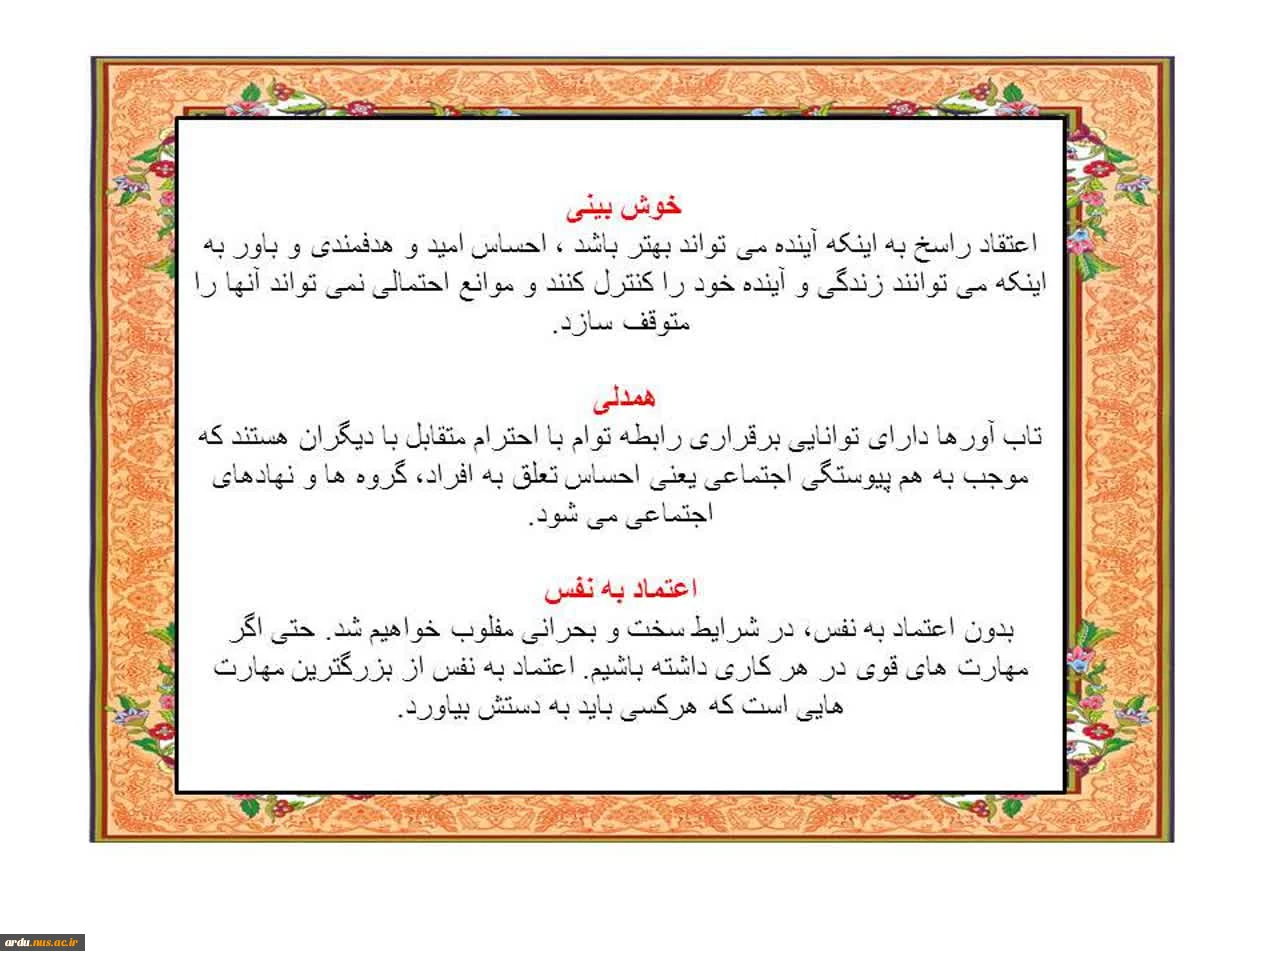 خوش بینی
اعتقاد راسخ به اینکه آینده می تواند بهتر باشد ، احساس امید و هدفمندی و باور به
اینکه می توانند زندگی و آینده خود را کنترل کنند و موانع احتمالی نمی تواند آنها را
متوقف سازد.
همدلی
تاب آورها دارای توانایی برقراری رابطه توام با احترام متقابل با دیگران هستند که
موجب به هم پیوستگی اجتماعی یعنی احساس تعلق به افراد، گروه ها و نهادهای
اجتماعی می شود.
اعتماد به نفس
بدون اعتماد به نفس، در شرایط سخت و بحرانی مفلوب خواهیم شد. حتی اگر
مهارت های قوی در هر کاری داشته باشیم. اعتماد به نفس از بزرگترین مهارت
هایی است که هرکسی باید به دستش بیاورد.
ardu.nus.ac.ir